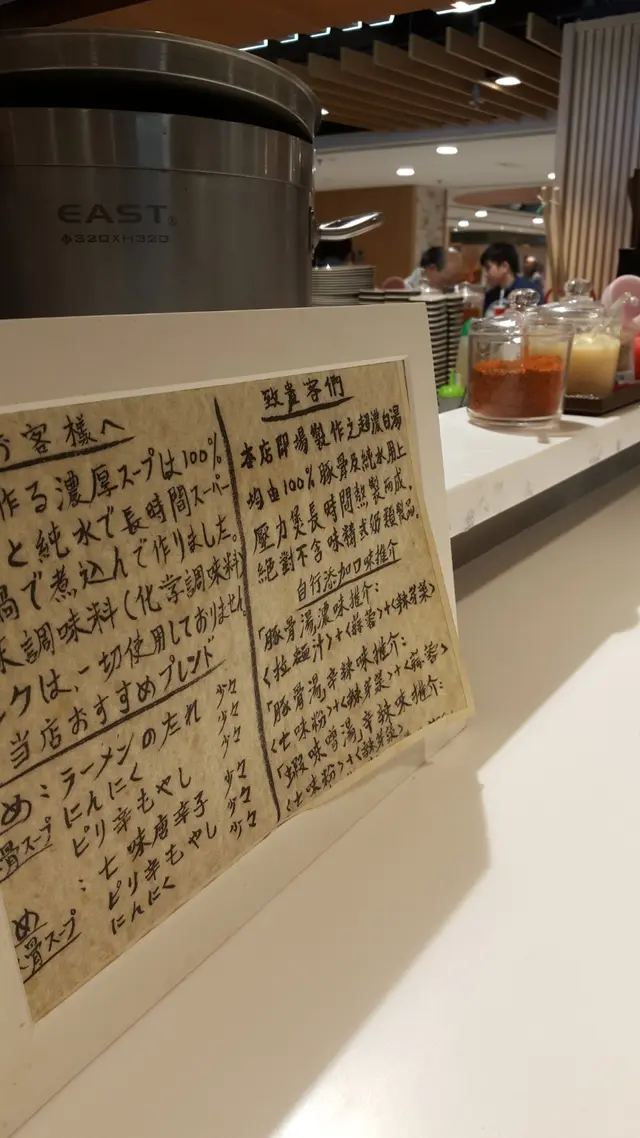 EAST®
Φ320×H320
客様へ
作る濃厚スープは100%
と純水で長時間スーパー
鍋で煮込んで作りました。
調味料(化学調味料)
クは、一切使用しておりません
当店おすすめブレンド
め:ラーメンのたれ 少々
骨スープ にんにく 少々
ピリ辛もやし 少々
:七味唐辛子 少々
め ピリ辛もやし 少々
骨スープ にんにく 少々
致貴客們
本店即場製作之超濃白湯
均由100%豚骨及純水用上
壓力煲長時間熬製而成,
絕對不含味精或奶類製品。
自行添加口味推介
「豚骨湯,濃味推介:
<拉麵汁>+<蒜蓉>+<辣芽菜>
「豚骨湯,辛辣味推介:
<七味粉>+<辣芽菜>+<蒜蓉>
「蝦味噌湯,辛辣味推介:
<七味粉>+<辣芽菜>